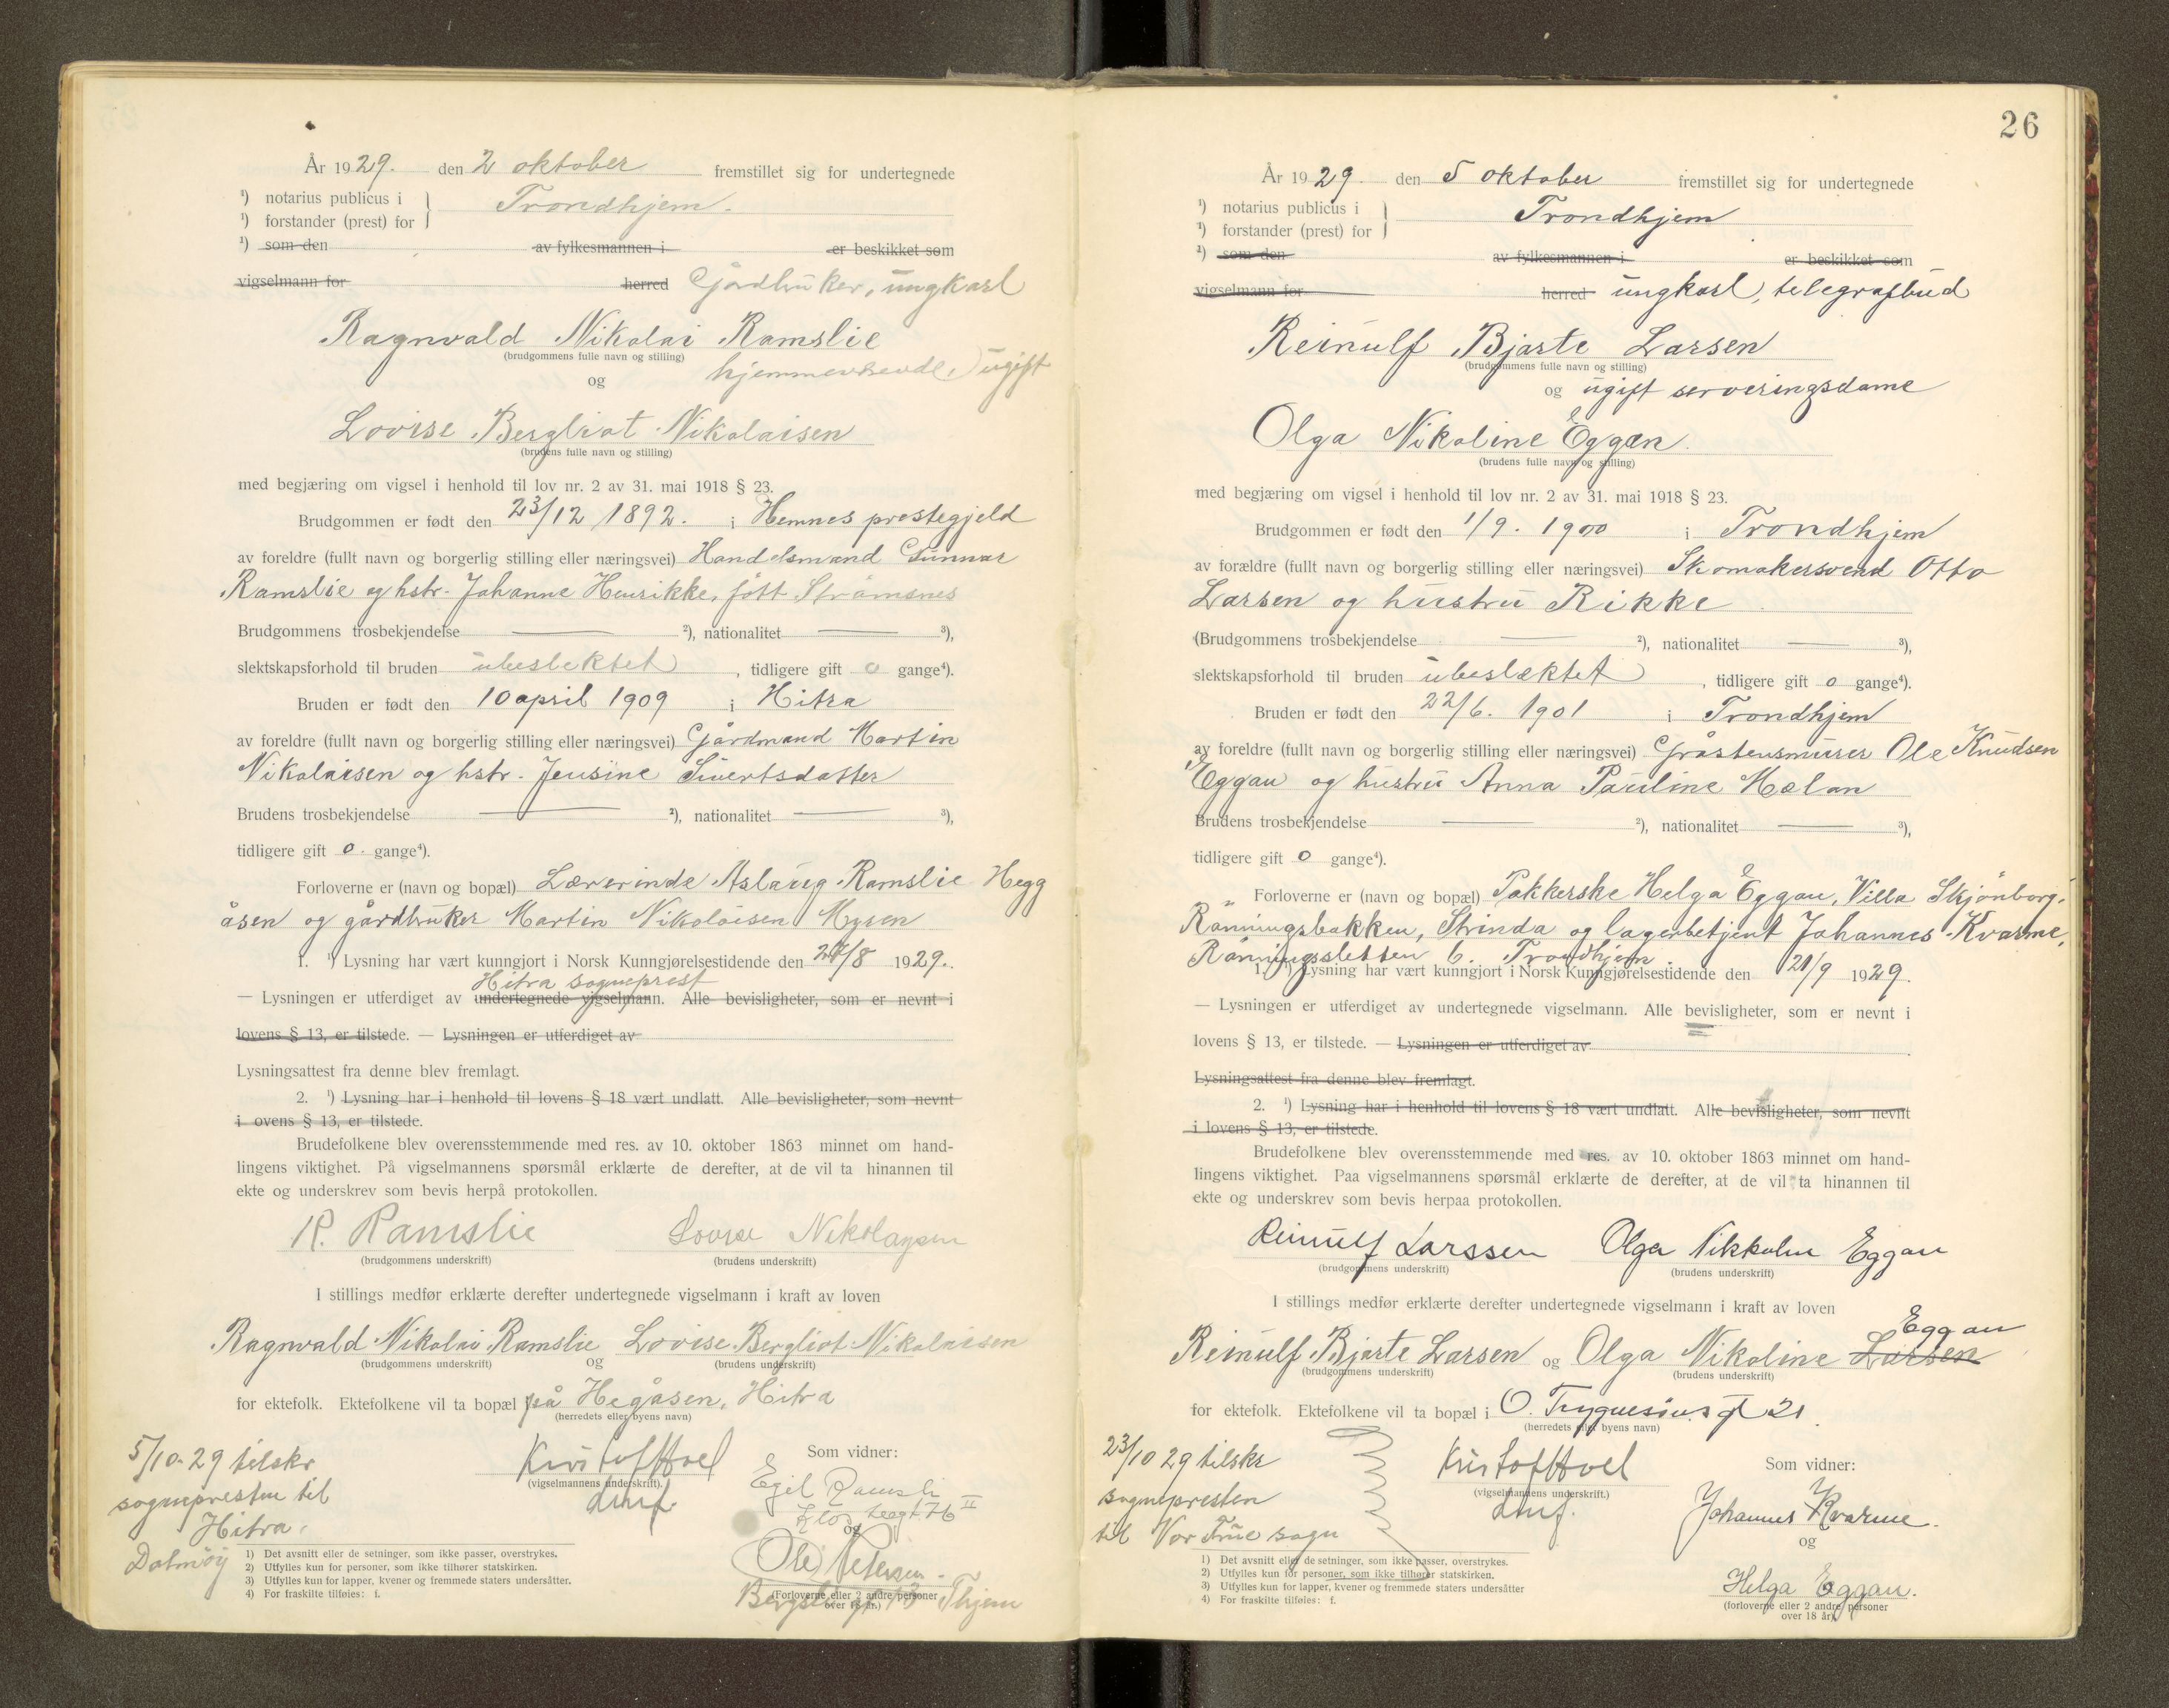 År 1929. den 2 oktober fremstillet sig for undertegnede
¹) notarius publicus i
¹) forstander (prest) for } Trondhjem.
¹) som den av fylkesmannen i er beskikket som
vigselmann for herred Gårdbruker, ungkarl
Ragnvald Nikolai Ramslie
(brudgommens fulle navn og stilling)
og hjemmeværende, ugift
Lovise Bergliot Nikolaisen
(brudens fulle navn og stilling)
med begjæring om vigsel i henhold til lov nr. 2 av 31. mai 1918 § 23.
Brudgommen er født den 23/12 1892. i Hemnes prestegjeld
av foreldre (fullt navn og borgerlig stilling eller næringsvei) Handelsmand Gunnar
Ramslie og hstr. Johanne Henrikke, fött Strömsnes
Brudgommens trosbekjendelse — ²), nationalitet — ³),
slektskapsforhold til bruden ubeslektet, tidligere gift 0 gange⁴).
Bruden er født den 10 april 1909 i Hitra
av foreldre (fullt navn og borgerlig stilling eller næringsvei) Gårdmand Martin
Nikolaisen og hstr. Jensine Sivertsdatter
Brudens trosbekjendelse — ²), nationalitet — ³),
tidligere gift 0. gange⁴).
Forloverne er (navn og bopæl) Lærerinde Aslaug Ramslie Hegg
åsen og gårdbruker Martin Nikolaisen Mysen
1. ¹) Lysning har vært kunngjort i Norsk Kunngjørelsestidende den 24/8 1929.
Hitra sogneprest
— Lysningen er utferdiget av undertegnede vigselmann. Alle bevisligheter, som er nevnt i
lovens § 13, er tilstede. — Lysningen er utferdiget av
Lysningsattest fra denne blev fremlagt.
2. ¹) Lysning har i henhold til lovens § 18 vært undlatt. Alle bevisligheter, som nevnt
i ovens § 13, er tilstede.
Brudefolkene blev overensstemmende med res. av 10. oktober 1863 minnet om hand-
lingens viktighet. På vigselmannens spørsmål erklærte de derefter, at de vil ta hinannen til
ekte og underskrev som bevis herpå protokollen.
R. Ramslie Lovise Nikolaysen
(brudgommens underskrift) (brudens underskrift)
I stillings medfør erklærte derefter undertegnede vigselmann i kraft av loven
Ragnvald Nikolai Ramslie og Lovise Bergliot Nikolaisen
(brudgommens underskrift) (brudens underskrift)
for ektefolk. Ektefolkene vil ta bopæl på Hegåsen, Hitra
(herredets eller byens navn)
5/10-29 tilskr
sognepresten til
Hitra.
Dolmöy
Kristof Hoel
(vigselmannens underskrift).
Som vidner:
Egil Ramsli
og
Ole Petersen
(Forloverne eller 2 andre personer
over 18 år.)
13 Thjem
1) Det avsnitt eller de setninger, som ikke passer, overstrykes.
2) Utfylles kun for personer, som ikke tilhører statskirken.
3) Utfylles kun for lapper, kvener og fremmede staters undersåtter.
4) For fraskilte tilføies: f.
26
År 1929. den 5 oktober fremstillet sig for undertegnede
¹) notarius publicus i
¹) forstander (prest) for } Trondhjem
¹) som den av fylkesmannen i er beskikket som
vigselmann for herred ungkarl, telegrafbud
Reinulf Bjarte Larsen
(brudgommens fulle navn og stilling)
og ugift serveringsdame
Olga Nikoline Eggen
(brudens fulle navn og stilling)
med begjæring om vigsel i henhold til lov nr. 2 av 31. mai 1918 § 23.
Brudgommen er født den 1/9. 1900 i Trondhjem
av forældre (fullt navn og borgerlig stilling eller næringsvei) Skomakersvend Otto
Larsen og hustru Rikke
(Brudgommens trosbekjendelse — ²), nationalitet — ³),
slektskapsforhold til bruden ubeslæktet, tidligere gift 0 gange⁴).
Bruden er født den 22/6. 1901 i Trondhjem
av foreldre (fullt navn og borgerlig stilling eller næringsvei) Gråstensmurer Ole Knudsen
Eggan og hustru Anna Pauline Mælan
Brudens trosbekjendelse — ²), nationalitet — ³),
tidligere gift 0 gange⁴).
Forloverne er (navn og bopæl) Pakkerske Helga Eggau, Villa Skjönborg,
Rönningsbakken, Strinda og lagerbetjent Johannes Kvarme,
Rönningssletten 6. Trondhjem.
1. ¹) Lysning har vært kunngjort i Norsk Kunngjørelsestidende den 21/9 1929.
— Lysningen er utferdiget av undertegnede vigselmann. Alle bevisligheter, som er nevnt i
lovens § 13, er tilstede. — Lysningen er utferdiget av
Lysningsattest fra denne blev fremlagt.
2. ¹) Lysning har i henhold til lovens § 18 vært undlatt. Alle bevisligheter, som nevnt
i lovens § 13, er tilstede.
Brudefolkene blev overensstemmende med res. av 10. oktober 1863 minnet om hand-
lingens viktighet. Paa vigselmannens spørsmål erklærte de derefter, at de vil ta hinannen til
ekte og underskrev som bevis herpaa protokollen.
Reinulf Larssen Olga Nikkoline Eggan
(brudgommens underskrift) (brudens underskrift)
I stillings medfør erklærte derefter undertegnede vigselmann i kraft av loven
Eggan
Reinulf Bjarte Larsen og Olga Nikoline Larsen
(brudgommens underskrift) (brudens underskrift)
for ektefolk. Ektefolkene vil ta bopæl i O. Trygvesöns gt 21
(herredets eller byens navn)
23/10 29 tilskr
sognepresten
til Vor Frue sogn
Kristof Hoel
(vigselmannens underskrift.)
Som vidner:
Johannes Kvarme.
og
Helga Eggau.
(forloverne eller 2 andre personer
over 18 år).
1) Det avsnitt eller de setninger, som ikke passer, overstrykes.
2) Utfylles kun for personer, som ikke tilhører statskirken.
3) Utfylles kun for lapper, kvener og fremmede staters undersåtter
4) For fraskilte tilføies: f.